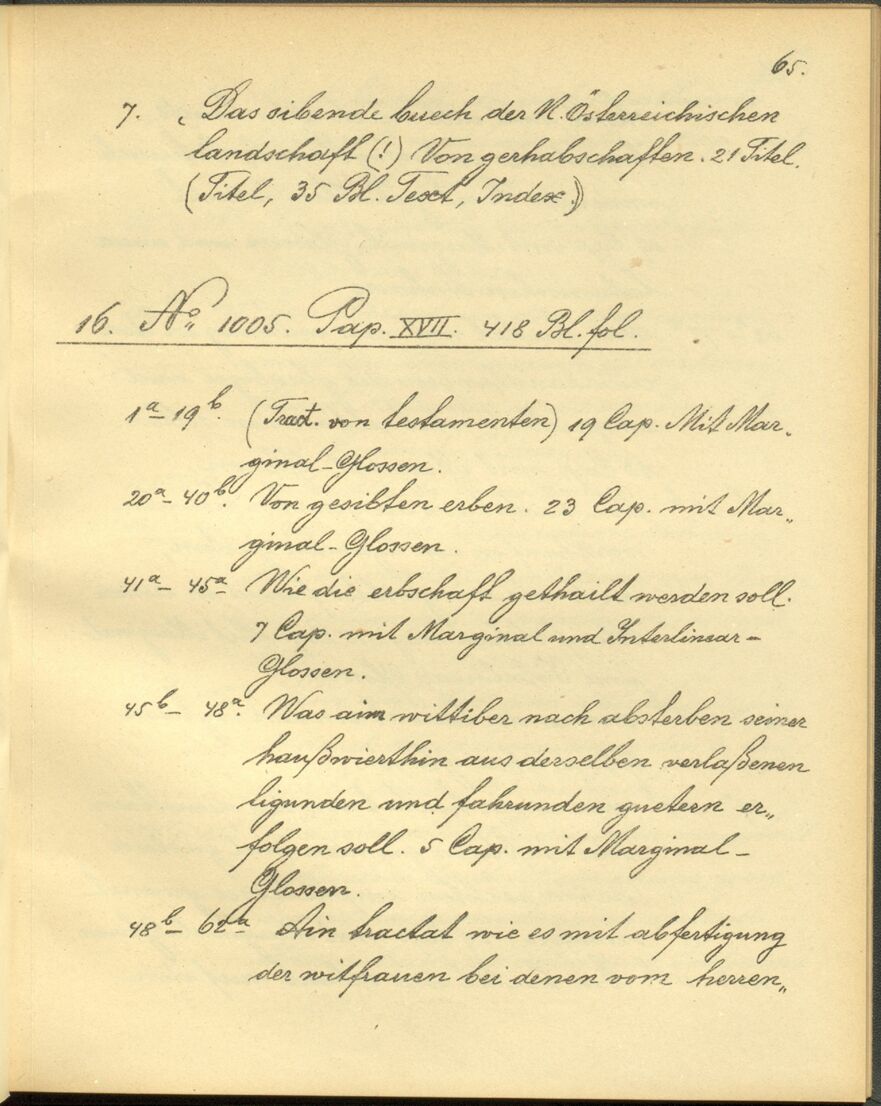 65.
7. „Das sibende buech der N. Österreichischen
landschaft (!) Von gerhabschaften. 21 Titel.
(Titel, 35 Bl. Text, Index.)
16. No 1005. Pap. XVII. 418 Bl. fol.
1a – 19b. (Tract. von testamenten) 19 Cap. Mit Mar„
ginal-Glossen.
20a – 40b. Von gesibten erben. 23 Cap. mit Mar„
ginal-Glossen.
41a – 45a Wie die erbschaft gethailt werden soll.
7 Cap. mit Marginal und Interlinear-
Glossen.
45b – 48a. Was aim wittiber nach absterben seiner
haußwierthin aus derselben verlaßenen
ligunden und fahrunden guetern er„
folgen soll. 5 Cap. mit Marginal-
Glossen.
48b – 62a Ain tractat wie es mit abfertigung
der witfrauen bei denen vom herren„